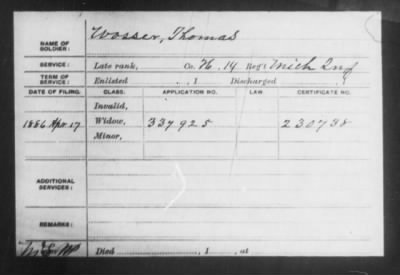 NAME OF SOLDIER: Wosser, Thomas
SERVICE: Late rank, Co. K. 14 Reg't Mich Inf
TERM OF SERVICE: Enlisted , 1 Discharged , 1
DATE OF FILING. CLASS. APPLICATION NO. LAW CERTIFICATE NO.
Invalid,
1886 Apr. 17 Widow, 337925 230738
Minor,
ADDITIONAL SERVICES:
REMARKS:
Died , 1 , at